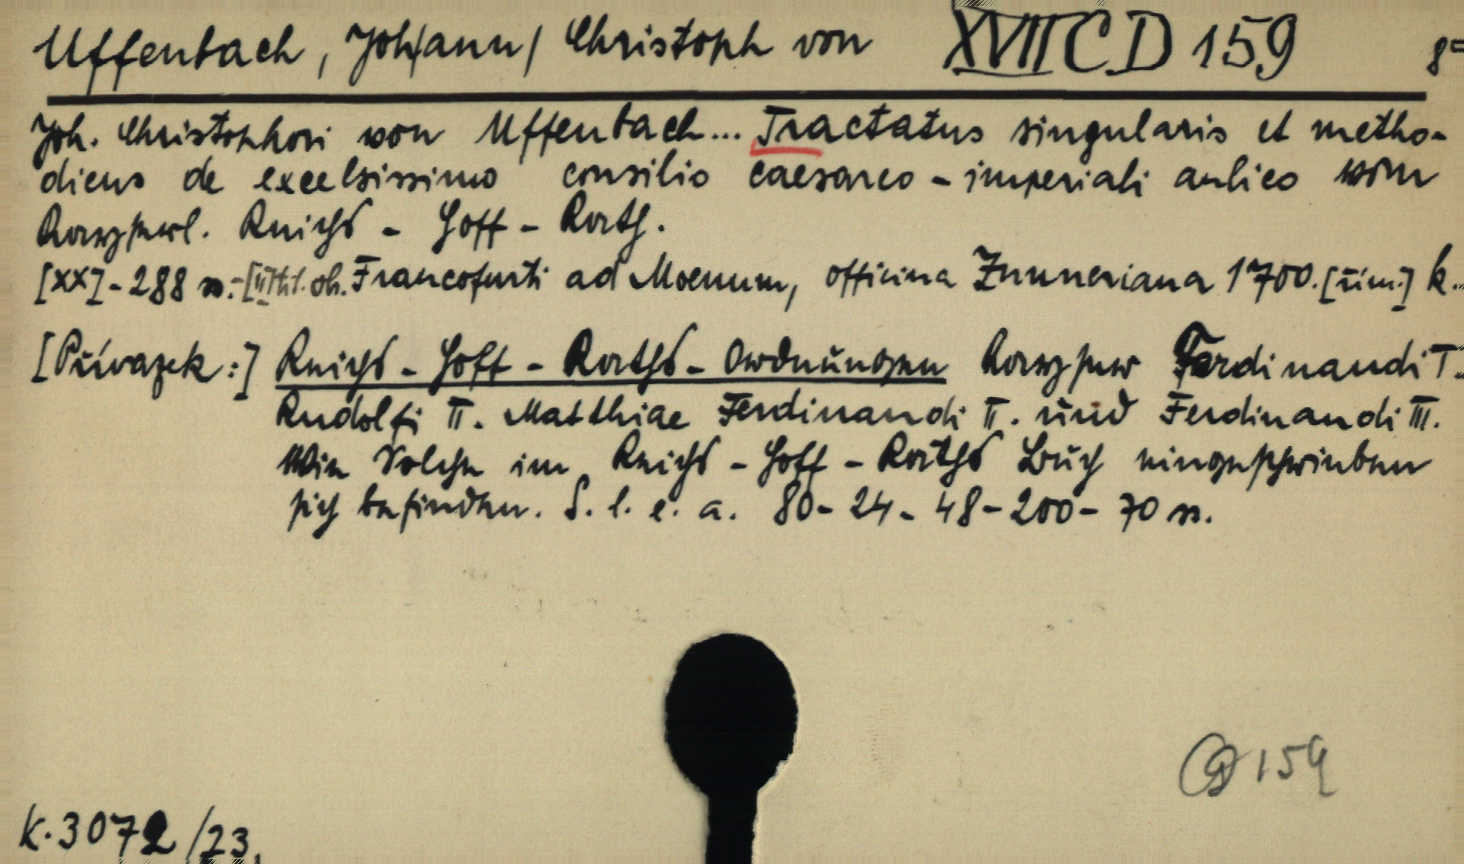 Uffenbach, Joh/ann/ Christoph von XVIII CD 159 8°
Joh. Christophori von Uffenbach... Tractatus singularis et metho-
dicus de excelsissimo consilio caesareo - imperiali aulico vom
Kayserl. Reichs - Hoff - Rath.
[XX] - 288 s. - Francofurti ad Moenum, officina Zunneriana 1700. [řím.] k..
[Přívazek:] Reichs - Hoff - Raths - Ordnungen Kayser Ferdinandi I.
Rudolfi II. Matthiae Ferdinandi II. und Ferdinandi III.
Wie Solche im Reichs - Hoff - Raths Buch eingeschrieben
sich befinden. S. l. e. a. 80 - 24 - 48 - 200 - 70 s.
159
K. 3072/23.